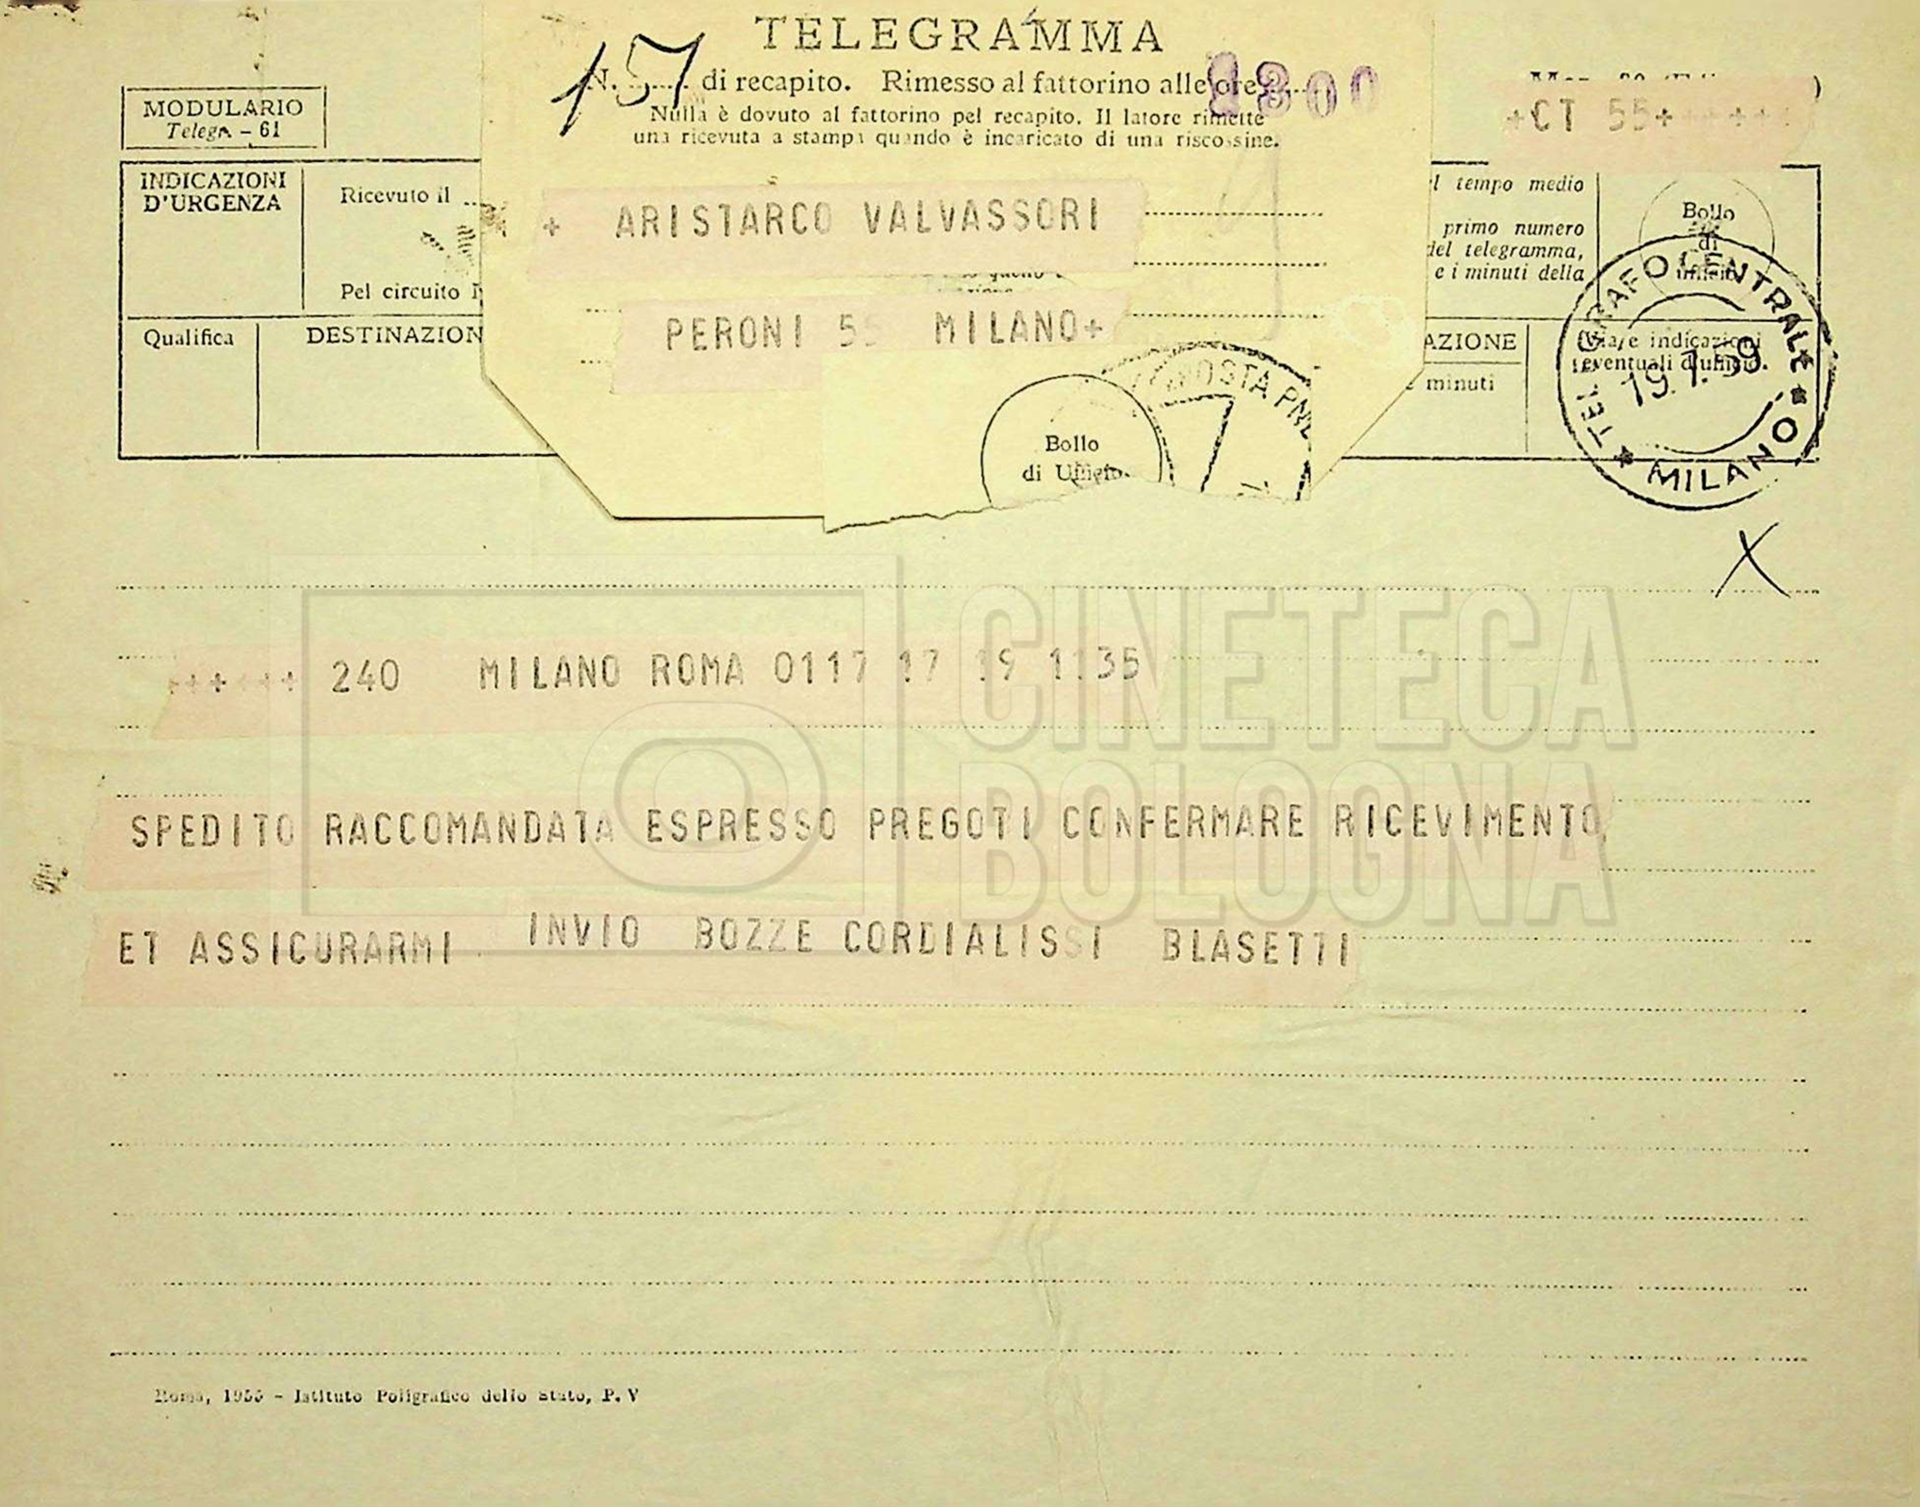 TELEGRAMMA
N. 157 di recapito. Rimesso al fattorino alle ore 1300
Nulla è dovuto al fattorino pel recapito. Il latore rimette
una ricevuta a stampa quando è incaricato di una riscossine.
MODULARIO
Telegr. - 61
+CT 55+
INDICAZIONI
D'URGENZA
Ricevuto il
Pel circuito
Qualifica
DESTINAZION
+ ARISTARCO VALVASSORI
PERONI 55 MILANO+
Bollo
di Ufficio
POSTA PNE
l tempo medio
primo numero
del telegramma,
e i minuti della
Bollo
di
ufficio
AZIONE
minuti
(Via e indicazioni
eventuali d'ufficio.
TELEGRAFO CENTRALE
MILANO
X
++++++ 240 MILANO ROMA 0117 17 19 1135
SPEDITO RACCOMANDATA ESPRESSO PREGOTI CONFERMARE RICEVIMENTO
ET ASSICURARMI INVIO BOZZE CORDIALISSI BLASETTI
CINETECA
BOLOGNA
Roma, 1955 - Istituto Poligrafico dello Stato, P. V